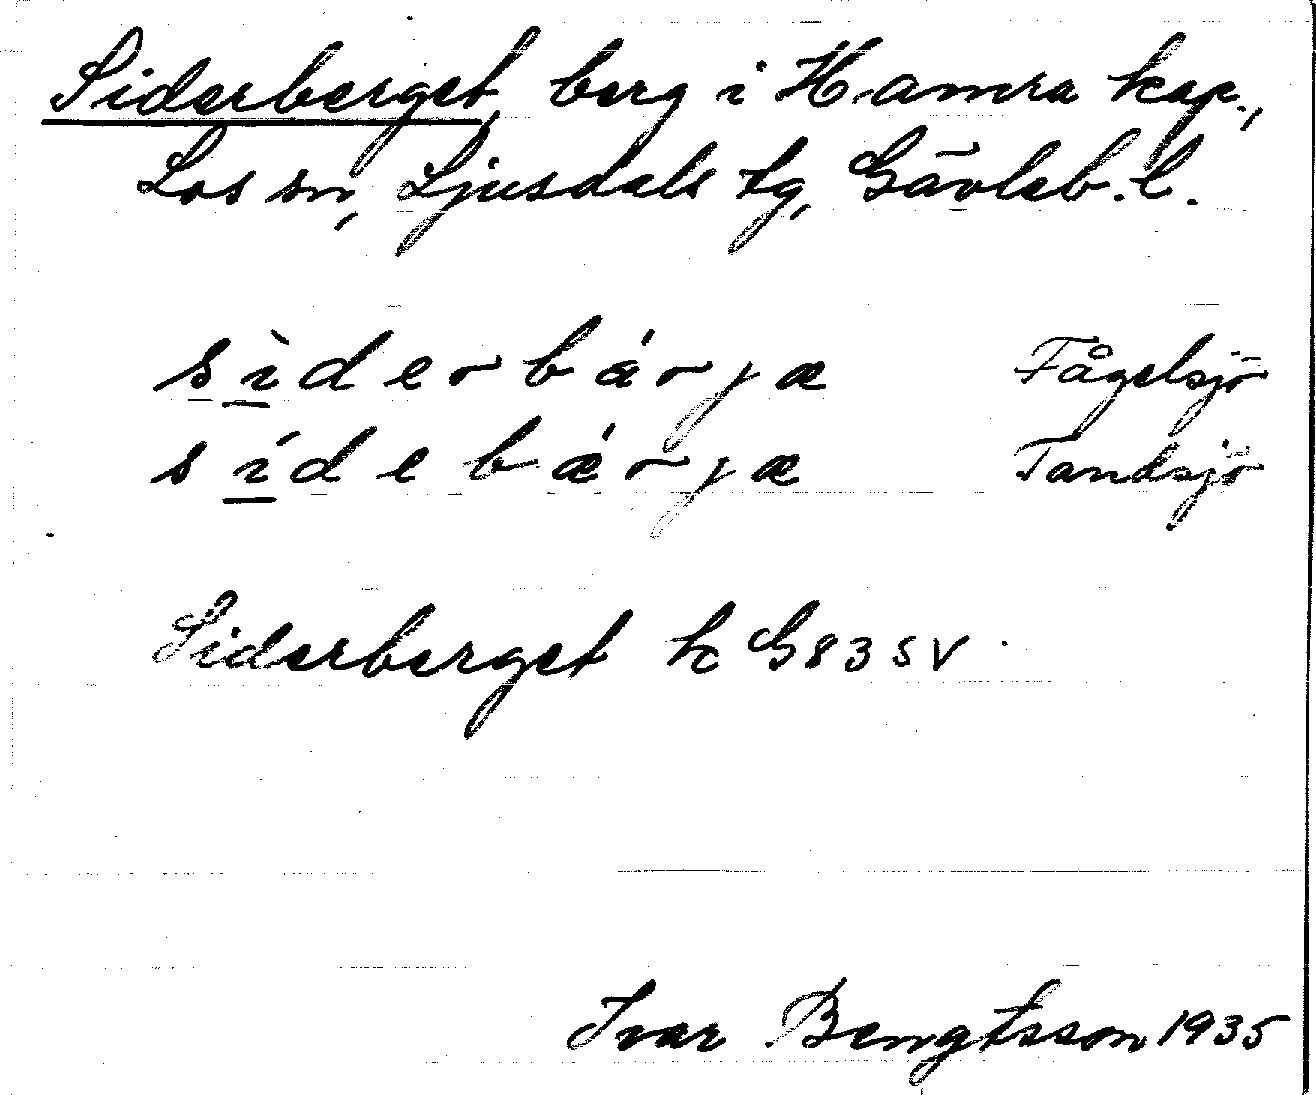 Siderberget, berg i Hamra kap.,
Los sn, Ljusdals tg, Gävleb. l.
sìderbárjæ Fågelsjö
sídebǽrjæ Tandsjö
Siderberget k G83 SV
Ivar Bengtsson 1935